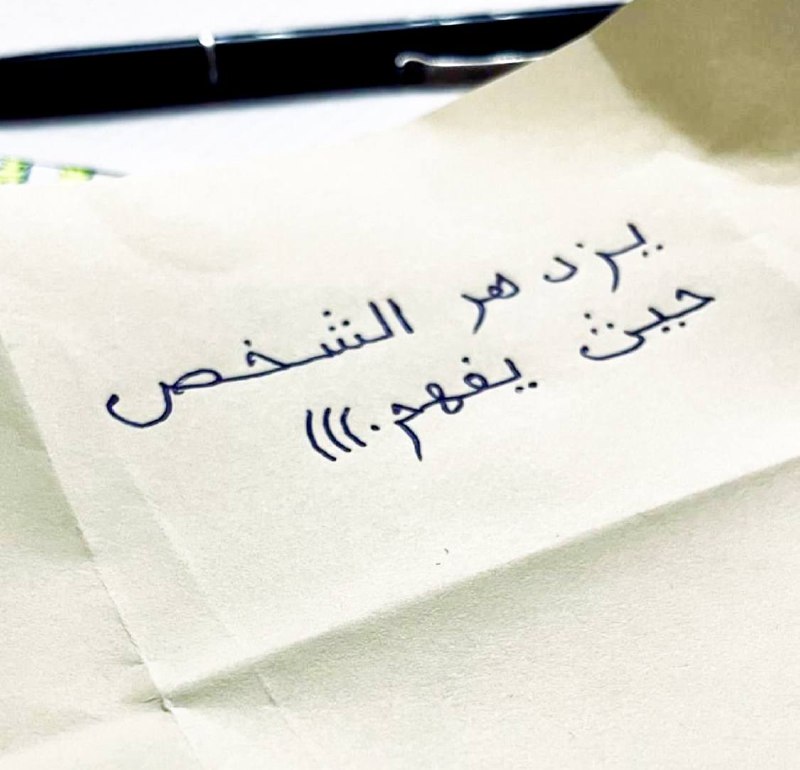 يزدهر الشخص
حيث يفهم.)))